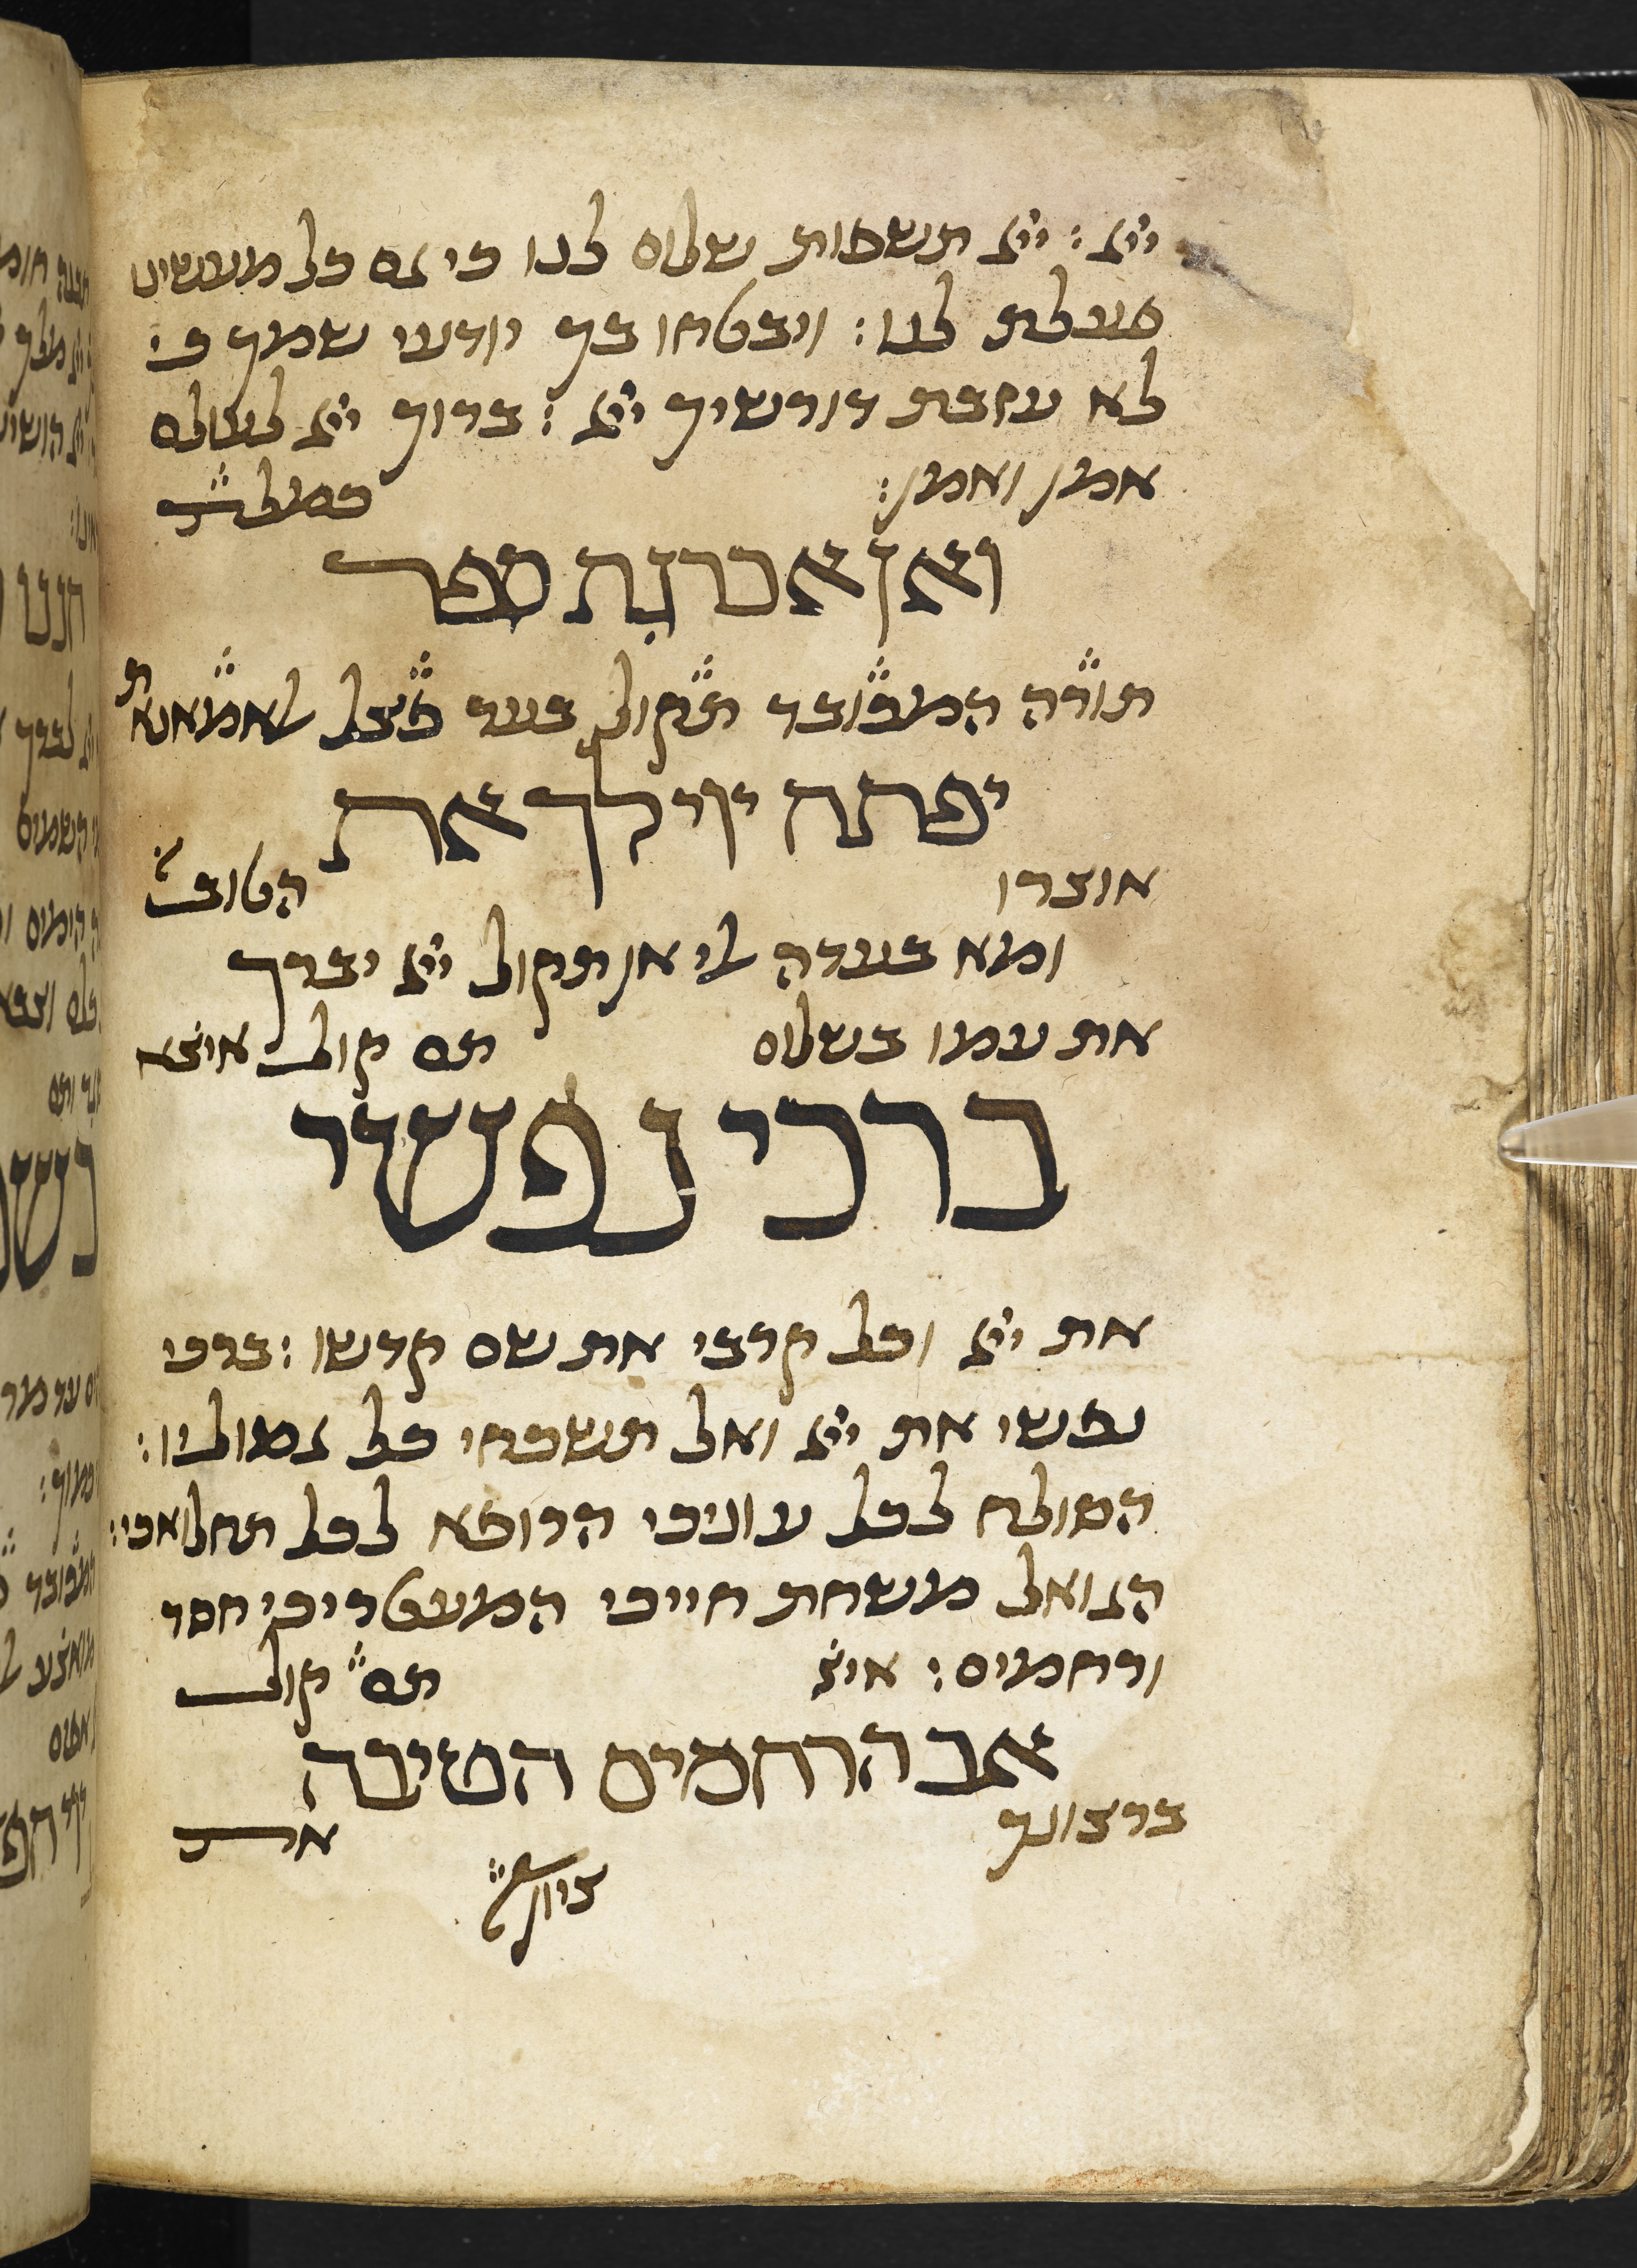 ייי : ייי תשפות שלום לנו כי גם כל מעשינו
פעלת לנו : ויבטחו בך יודעי שמך כי
לא עזבת דורשיך ייי : ברוך ייי לעולם
אמן ואמן :
ואן אכרגת ספר
תורה המכובד תקול בעד
יפתח ייי לך את
אוצרו הטוב
ומא בעדה לי אן תקול ייי יברך
את עמו בשלום תם קול איצא
ברכי נפשי
את ייי וכל קרבי את שם קדשו : ברכי
נפשי את ייי ואל תשכחי כל גמוליו :
הסולח לכל עוניכי הרופא לכל תחלואכי :
הגואל משחת חייכי המעטריכי חסד
ורחמים : איצ תם קול
אב הרחמים הטיבה
ברצונך את
ציון